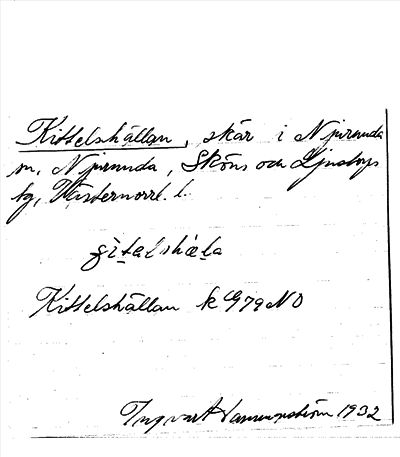 Kittelshällan, skär i Njurunda
sn, Njurunda, Sköns och Ljustorps
tg, Västernorrl. l.
Kittelshällan k G79NO
Ingvar Hammarström 1932